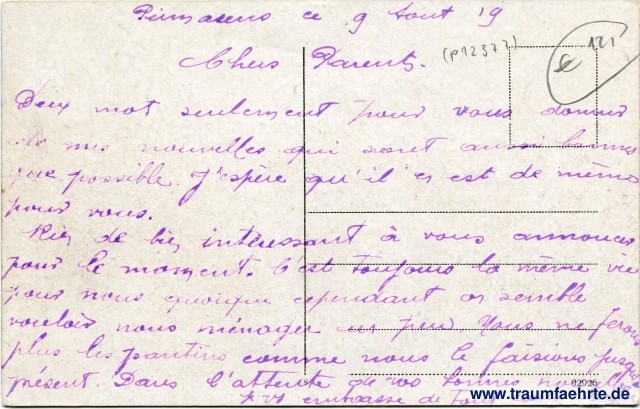 Pirmasens ce 9 Aout 19
(P12377)
121
Chers Parents.
Deux mot seulement pour vous donner
de mes nouvelles qui sont aussi bonnes
que possible. J'espère qu'il es est de même
pour vous.
Rien de bien intéressant à vous annoncer
pour le moment. C'est toujours la même vie
pour nous quoique cependant on semble
vouloir nous ménager un peu Nous ne ferons
plus les pantins comme nous le faisions jusque
présent. Dans l'attente de vos bonnes nouvelles
02926
embrasse de tout
www.traumfaehrte.de